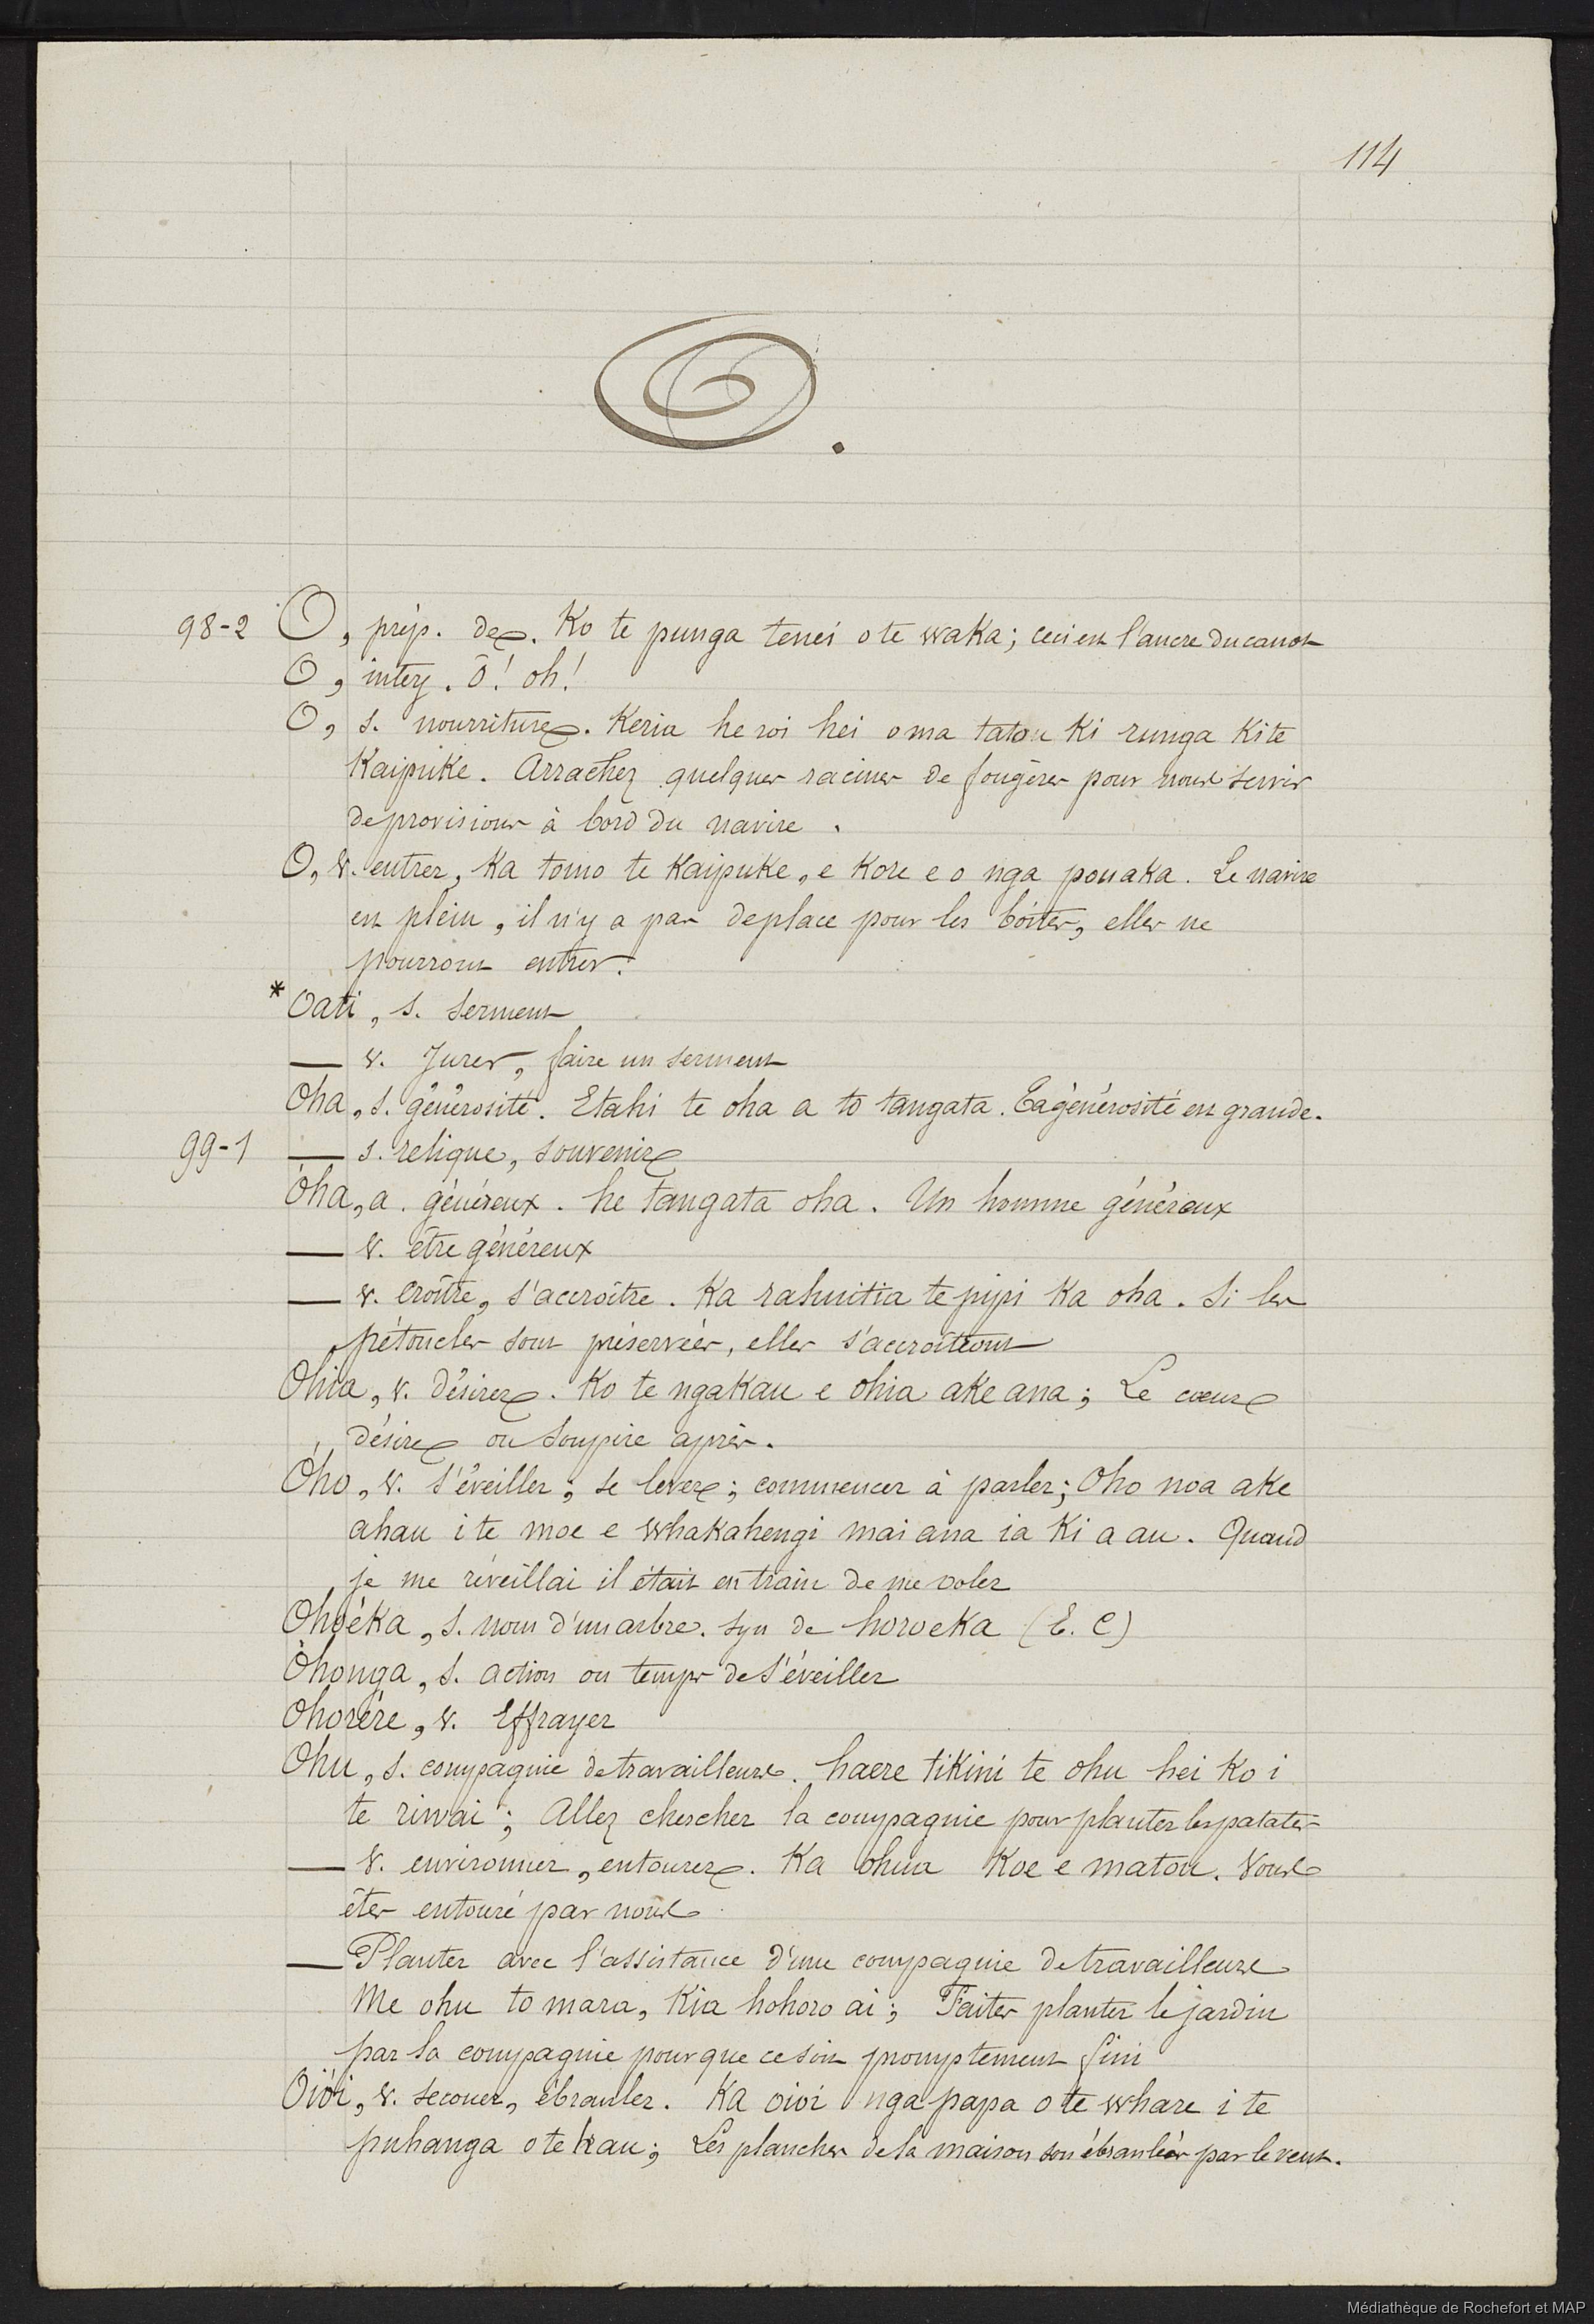 114
O.
98-2 O, prép. de. Ko te punga tenei o te waka; ceci est l'ancre du canot
O, interj. ō! oh!
O, s. nourriture. Keria he roi hei o ma tatou ki runga ki te
Kaipuke. Arrachez quelques racines de fougères pour nous servir
de provisions à bord du navire.
O, v. entrer, Ka tomo te Kaipuke, e kore e o nga pouaka. Le navire
est plein, il n'y a pas de place pour les boîtes, elles ne
pourront entrer.
* Oati, s. serment
— v. Jurer, faire un serment
Oha, s. générosité. Etahi te oha a to tangata. Ta générosité est grande.
99-1 — s. relique, souvenir
Óha, a. généreux. he tangata oha. Un homme généreux
— v. être généreux
— v. croître, s'accroître. Ka rahuitia te pipi Ka oha. Si les
pétoncles sont préservées, elles s'accroîtront
Ohia, v. désirer. Ko te ngakau e ohia ake ana; Le cœur
désire ou soupire après.
Óho, v. s'éveiller; se lever; commencer à parler; Oho noa ake
ahau i te moe e whakahengi mai ana ia Ki a au. Quand
je me réveillai il était en train de me voler
Ohoéka, s. nom d'un arbre. syn de horoeka (E. C)
Óhonga, s. action ou temps de s'éveiller
Ohorére, v. Effrayer
Ohu, s. compagnie de travailleurs. haere tikini te ohu hei ko i
te riwai; Allez chercher la compagnie pour planter les patates
— v. environner, entourer. Ka ohua Koe e matou. Vous
êtes entouré par nous
— Planter avec l'assistance d'une compagnie de travailleurs
Me ohu to mara, Kia hohoro ai; Faites planter le jardin
par la compagnie pour que ce soit promptement fini
Oiói, v. secouer, ébranler. Ka oioi nga papa o te whare i te
puhanga o te hau; Les planches de la maison son ébranlées par le vent.
Médiathèque de Rochefort et MAP